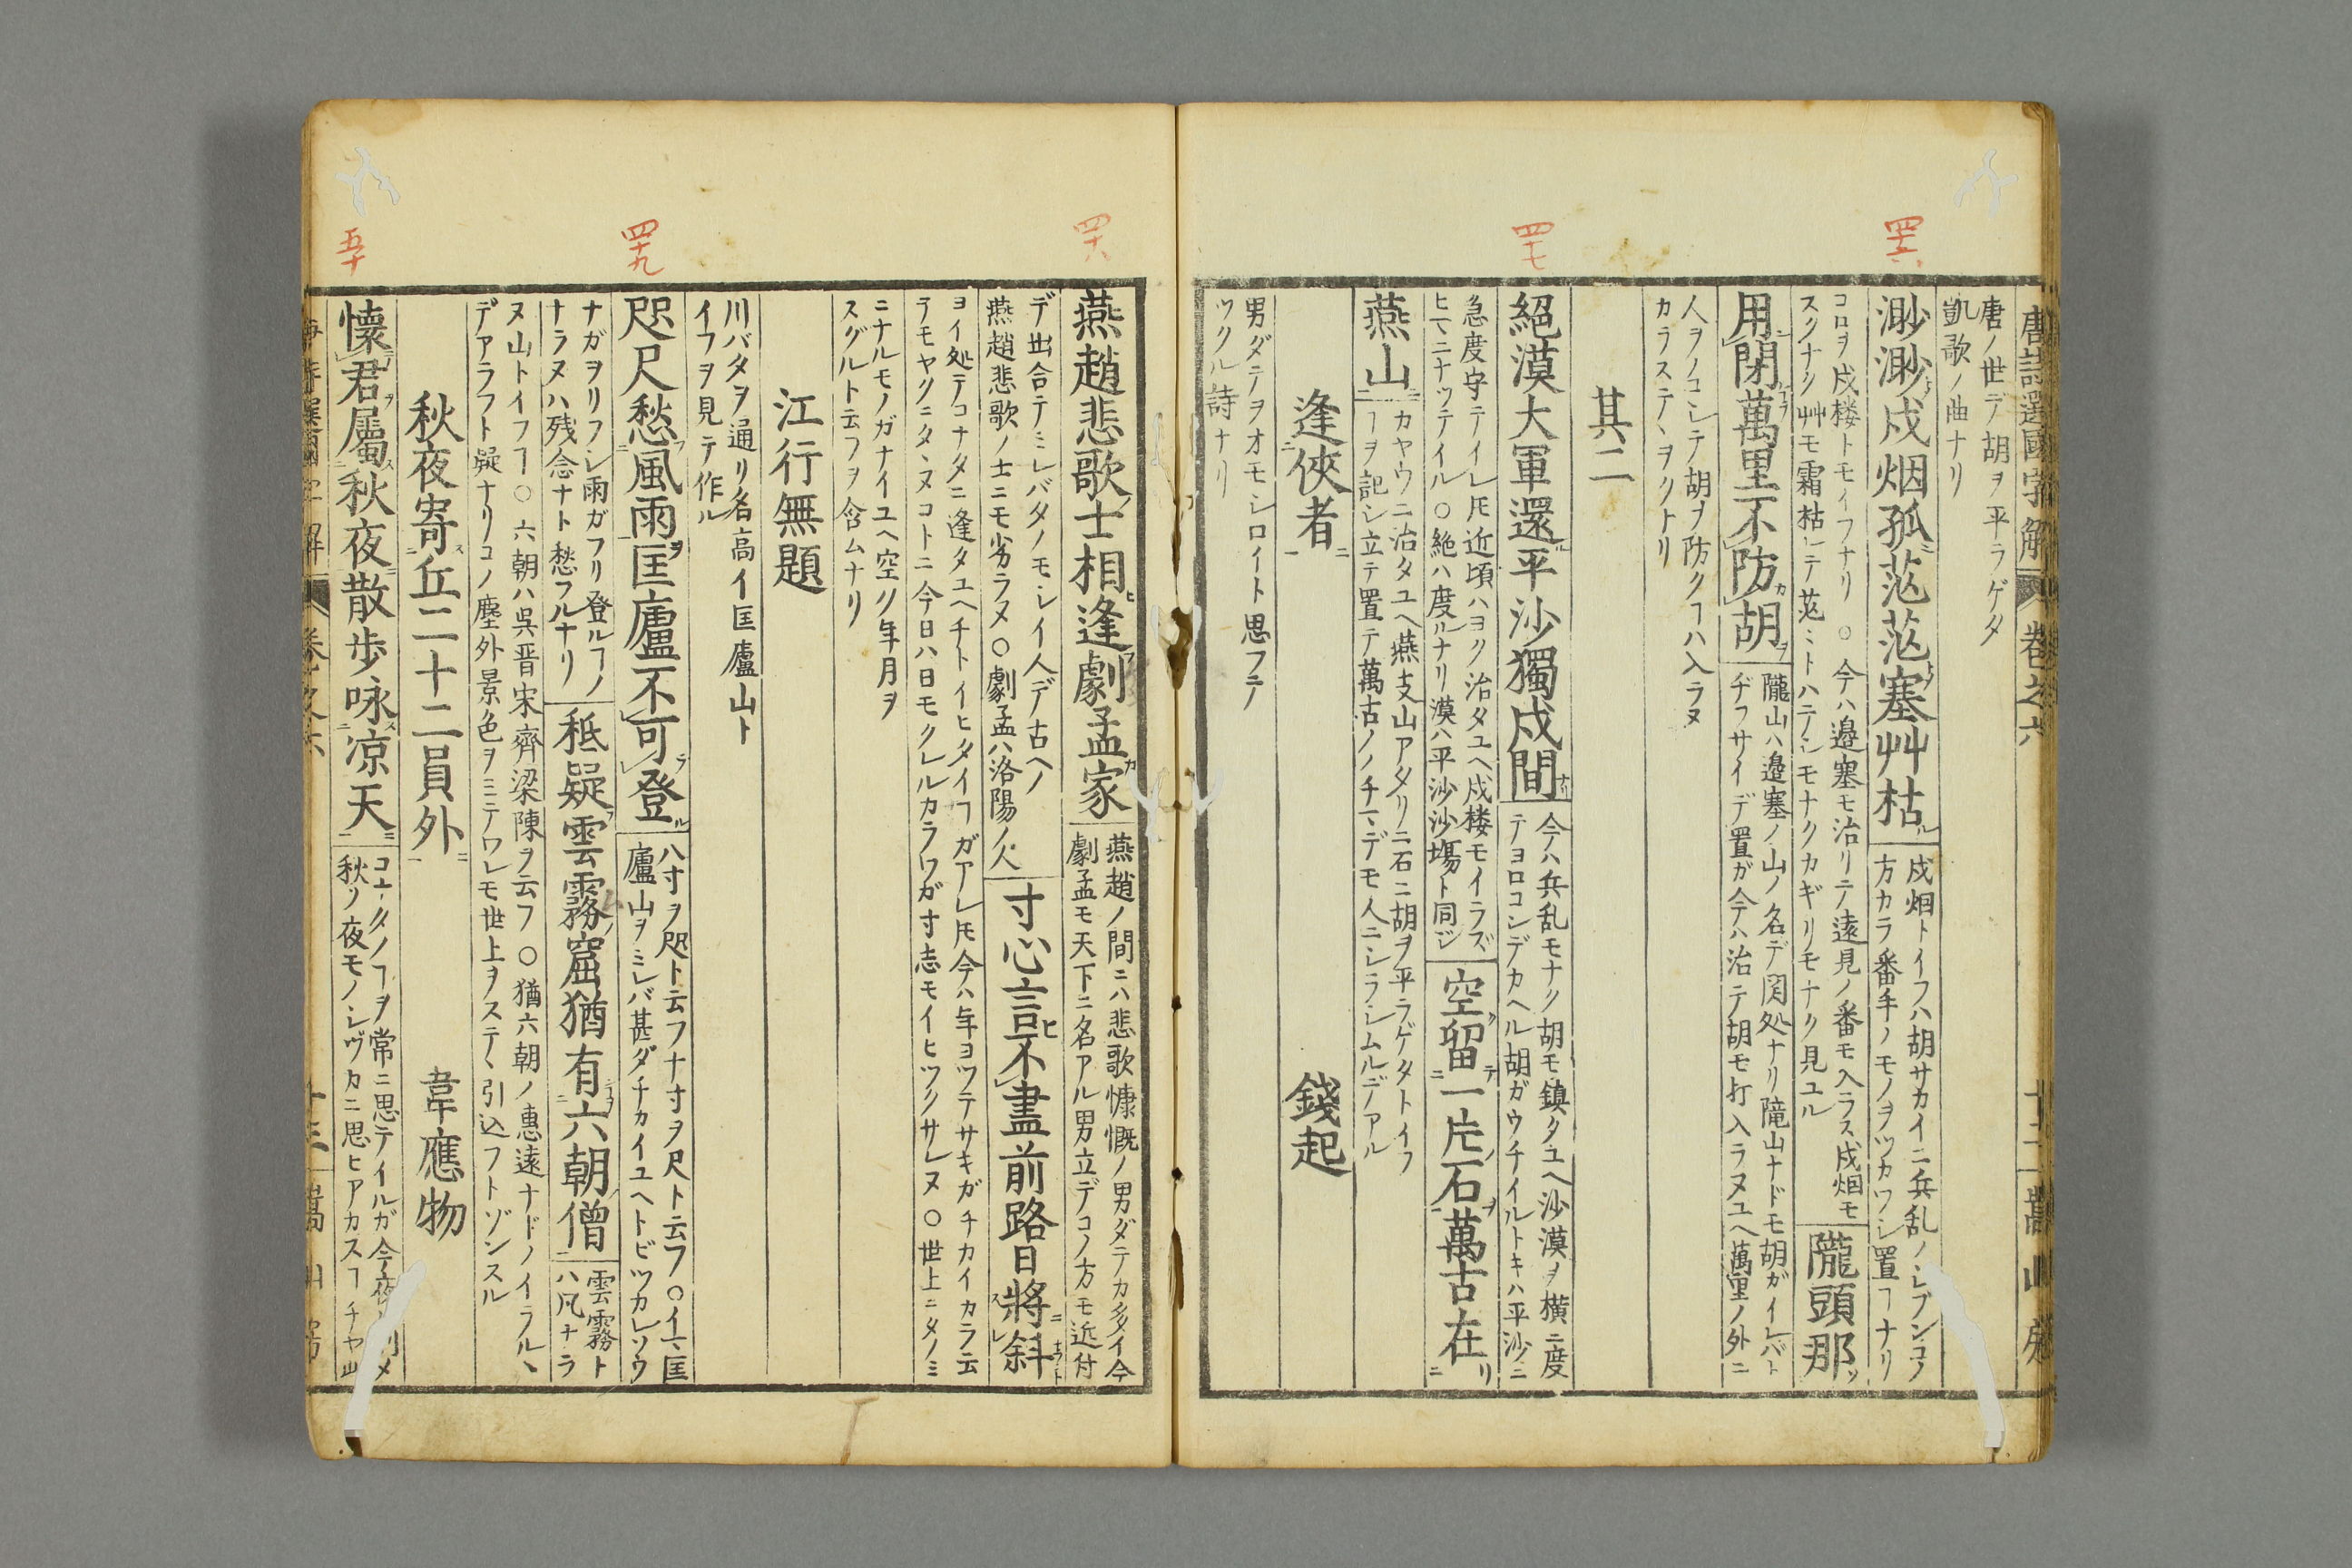 四十六
四十七
唐詩選國字解
卷之六
唐ノ世デ胡ヲ平ラゲタ
凱歌ノ曲ナリ
渺渺戍烟孤茫茫塞艸枯
戍烟トイフハ胡サカイニ兵乱ノ
方カラ番手ノモノヲツカワシ置ヿナリ
コロヲ戍楼トモイフナリ○今ハ邉塞モ治リテ遠見ノ番モ入ラス戍烟モ
スクナク艸モ霜枯レテ茫ミトハテシモナクカギリモナク見ユル
隴頭那
用閉萬里不防胡
隴山ハ邉塞ノ山ノ名デ関処ナリ隴山ナドモ胡ガイレバト
ヂフサイデ置ガ今ハ治テ胡モ打入ラヌユヘ萬里ノ外ニ
人ヲノコシテ胡ヲ防クヿハ入ラヌ
カラステヽヲクトリ
其二
絕漠大軍還平沙獨戍間
今ハ兵乱モナク胡モ鎮タユヘ沙漠ヲ横ニ度
テヨロコンデカヘル胡ガウチイルトキハ平沙ニ
急度守テイレ𪜈近頃ハヨク治タユヘ戍楼モイラズ
ヒマニナツテイル○絶ハ度ルナリ漠ハ平沙沙塲ト同ジ
空留一片石萬古在
燕山
カヤウニ治タユヘ燕支山アタリニ石ニ胡ヲ平ラゲタトイフ
ヿヲ記シ立テ置テ萬古ノノチマデモ人ニシラシムルデアル
逢俠者
錢起
男ダテヲオモシロイト思フテ
ツクル詩ナリ
四十八
四十九
五十
燕趙悲歌士相逢劇孟家
燕趙ノ間ニハ悲歌慷慨ノ男ダテカ多イ今
劇孟モ天下ニ名アル男立デコノ方モ近付
デ出合テミレバタノモシイ人デ古ヘノ
燕趙悲歌ノ士ニモ劣ラヌ○劇孟ハ洛陽ノ人
寸心言不盡前路日將斜
ヨイ処テコナタニ逢タユヘチトイヒタイヿガアレ𪜈今ハ年ヨツテサキガチカイカラ云
テモヤクニタヽヌコトニ今日ハ日モクレルカラワガ寸志モイヒツクサレヌ○世上ニタノミ
ニナルモノガナイユヘ空ク年月ヲ
スグルト云フヲ含ムナリ
江行無題
川バタヲ通リ名高イ匡廬山ト
イフヲ見テ作ル
咫尺愁風雨匡廬不可登
八寸ヲ咫ト云フナ寸ヲ尺ト云フ○イマ匡
廬山ヲミレバ甚ダチカイユヘトビツカレソウ
ナガヲリフシ雨ガフリ登ルヿノ
ナラヌハ残念ナト愁フルナリ
秪疑雲霧窟猶有六朝僧
雲霧ト
ハ凡ナラ
ヌ山トイフヿ○六朝ハ呉晋宋齊梁陳ヲ云フ○猶六朝ノ惠遠ナドノイラルヽ
デアラフト疑ナリコノ塵外景色ヲミテワレモ世上ヲステヽ引込フトゾンスル
秋夜寄丘二十二員外
韋應物
懷君屬秋夜散歩咏凉天
コナタノヿヲ常ニ思テイルガ今夜
秋ノ夜モノシヅカニ思ヒアカスヿチヤ